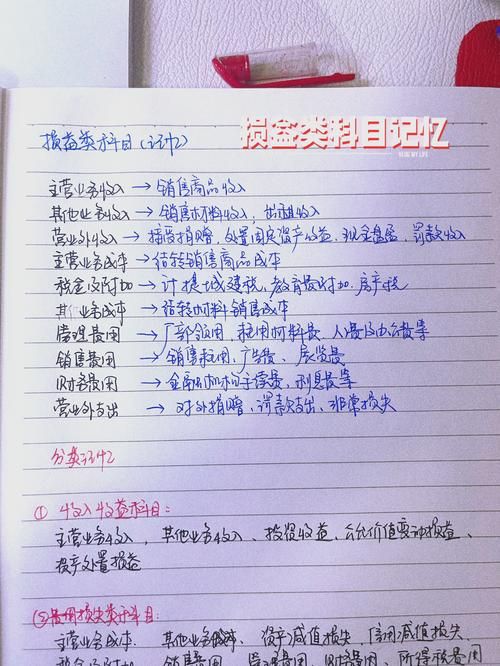 损益类科目记忆
VLOG MY LIFE
损益类科目(记忆)
主营业务收入 → 销售商品收入
其他业务收入 → 销售材料收入，出租收入
营业外收入 → 接受捐赠、处置固定资产收益、现金盘盈、罚款收入
主营业务成本 → 结转销售商品成本
税金及附加 → 计提城建税、教育费附加、房产税
其他业务成本 → 结转材料销售成本
管理费用 → 厂部领用、耗用材料费、人员及办公费等
销售费用 → 销售耗用、广告费、展览费
财务费用 → 金融机构手续费、利息费等
营业外支出 → 对外捐赠、罚款支出、非常损失
分类记忆
① 收入收益科目：
主营业务收入，其他业务收入、投资收益、公允价值变动损益、
资产处置损益
②费用损失类科目：
主营业务成本、其他业务成本、资产减值损失、信用减值损失、
税金及附加、销售费用、管理费用、财务费用、所得税费用